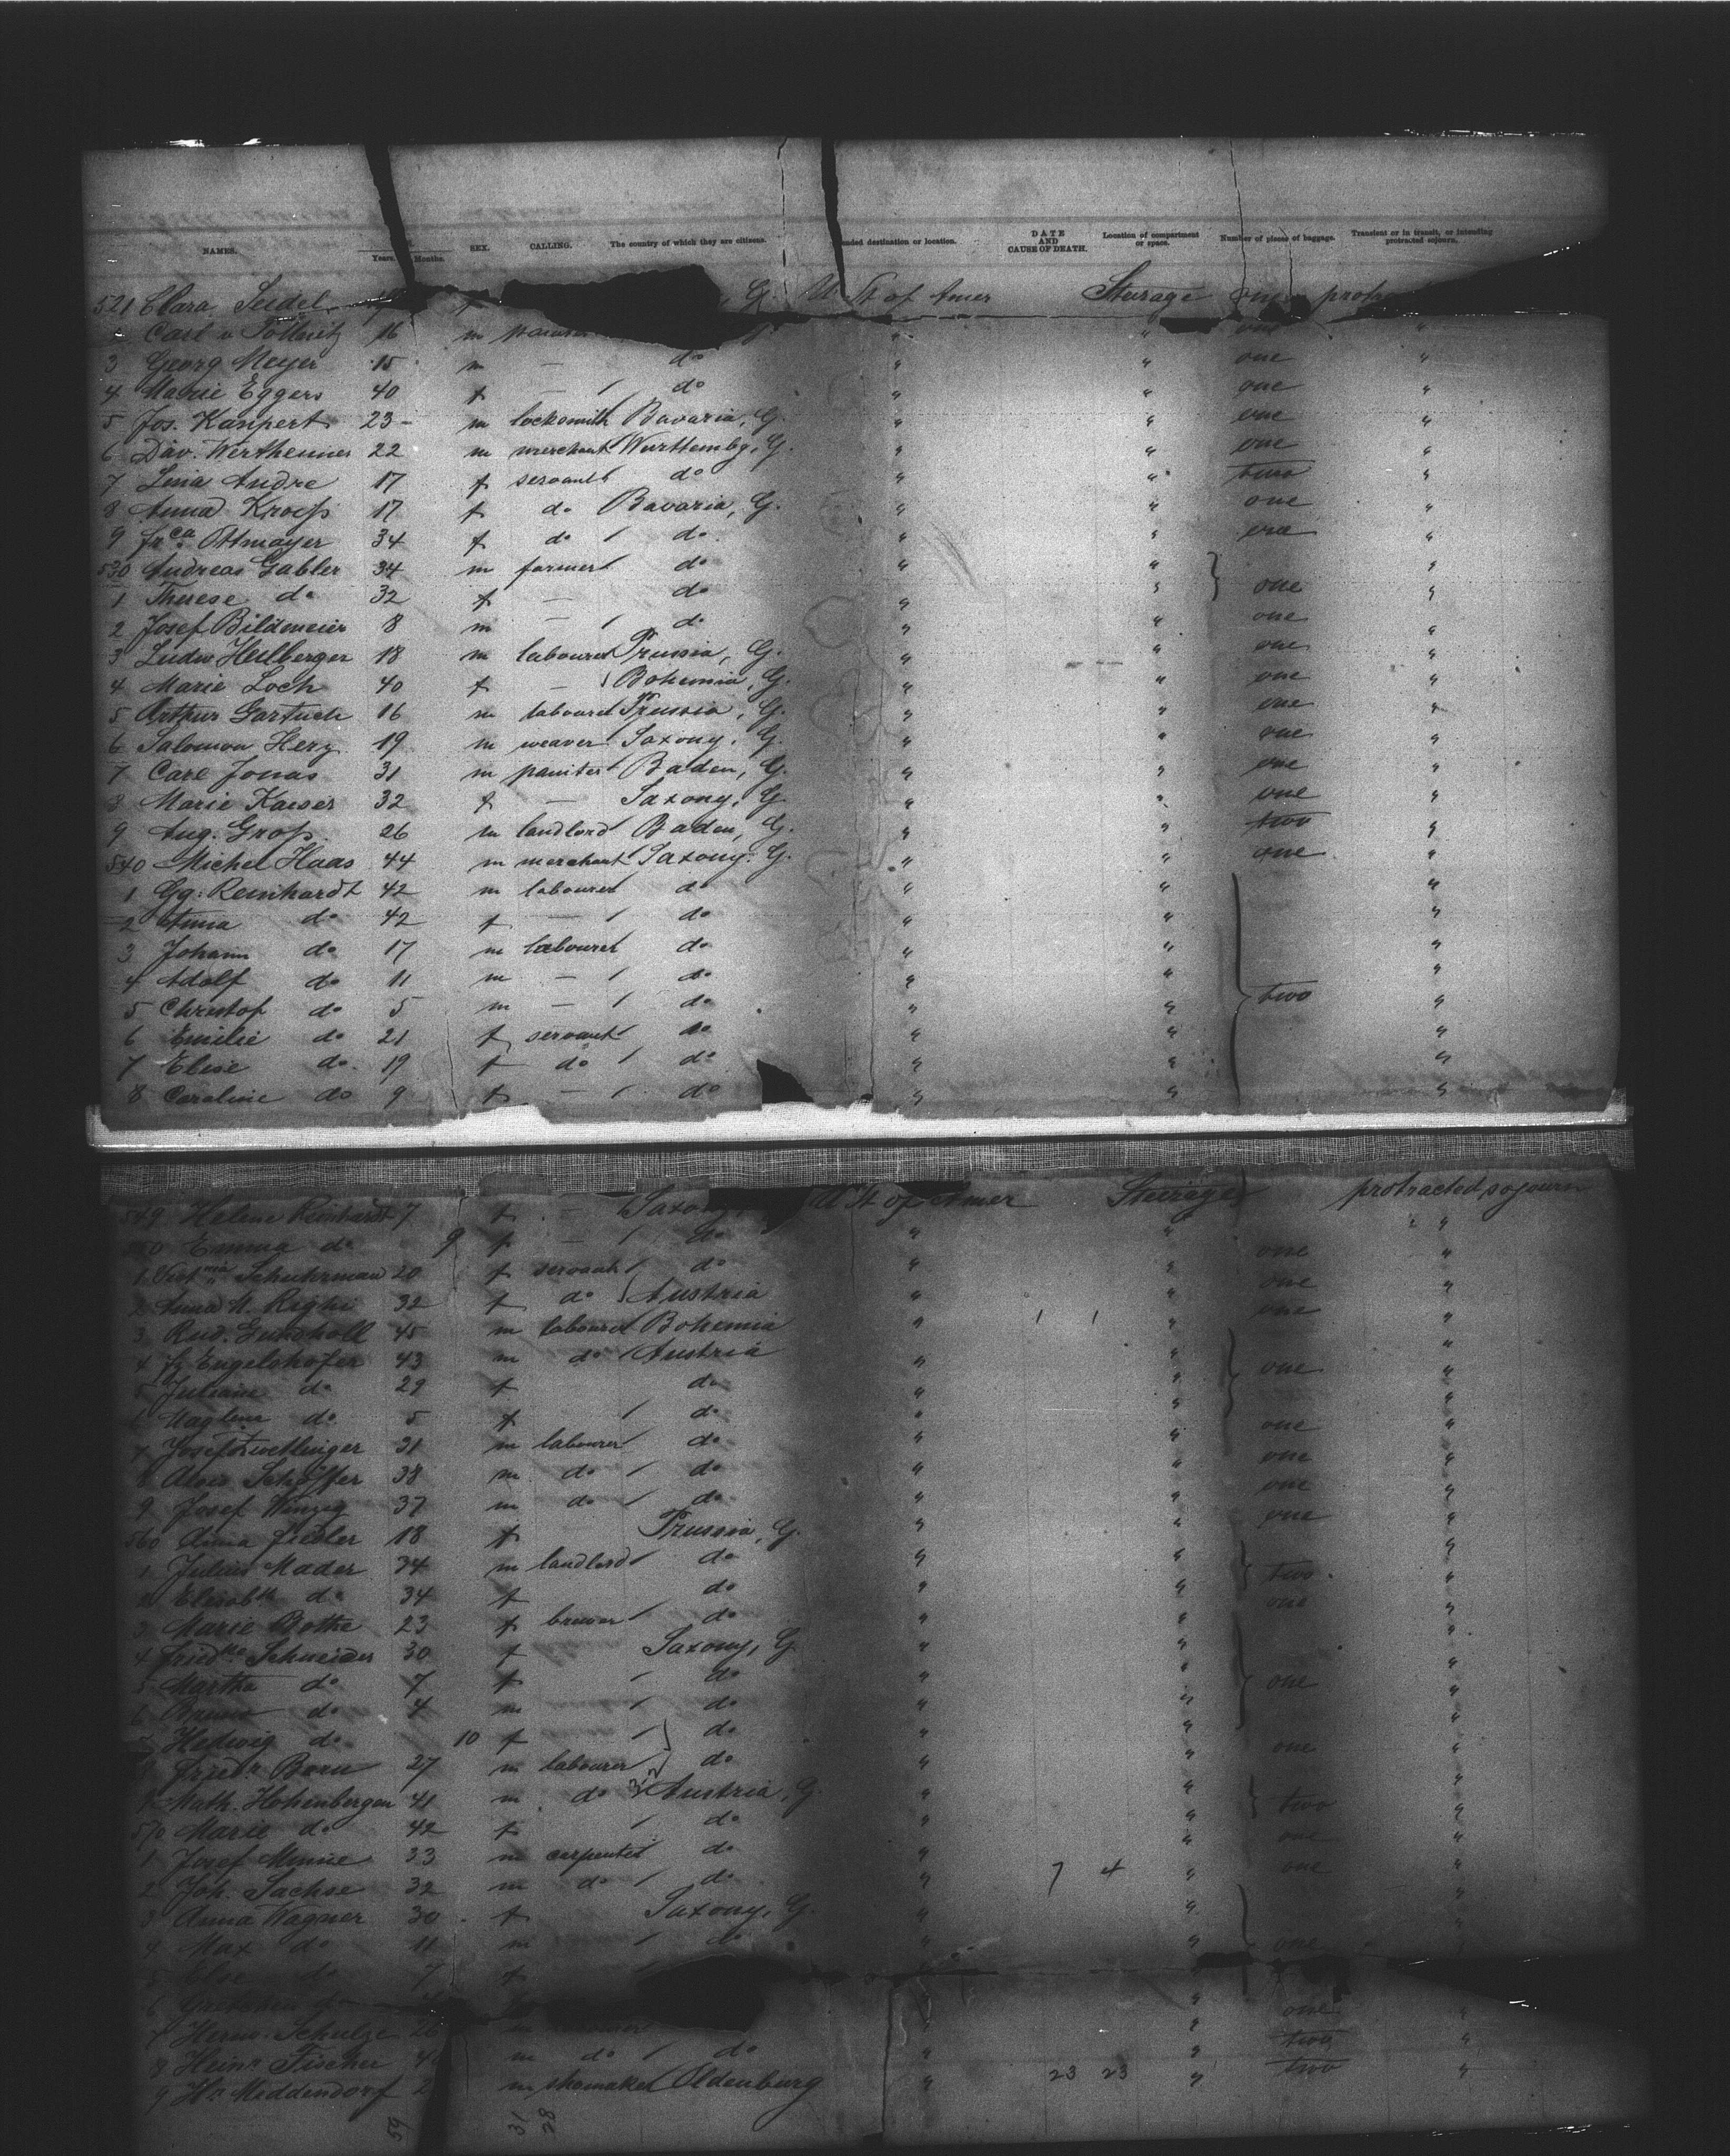 NAMES. Years. Months. SEX. CALLING. The country of which they are citizens. ended destination or location. DATE AND CAUSE OF DEATH. Location of compartment or space. Number of pieces of baggage. Transient or in transit, or intending protracted sojourn.
521 Clara Seidel f , G. U St of Amer Steerage one
Carl v 16 m " " one "
3 Georg Meyer 15 m — do " " one "
4 Marie Eggers 40 f — do " " one "
5 Jos. Kanpert 23 m locksmith Bavaria, G. " " one "
6 Dav. Wertheimer 22 m merchant Wurttembg, G. " " one "
7 Lina Andre 17 f servant do " " two "
8 Anna Kroeß 17 f do Bavaria, G. " " one "
9 Frca Ottmayer 34 f do do " " one "
530 Andreas Gabler 34 m farmer do " " "
1 Therese do 32 f — do " " one "
2 Josef Bildmeier 8 m — do " " one "
3 Ludw Heilberger 18 m labourer Prussia, G. " " one "
4 Marie Loch 40 f — Bohemia, G. " " one "
5 Arthur Gartuch 16 m labourer Prussia, G. " " one "
6 Salomon Herz 19 m weaver Saxony, G. " " one "
7 Carl Jonas 31 m painter Baden, G. " " one "
8 Marie Kaeser 32 f — Saxony, G. " " one "
9 Aug. Groß 26 m landlord Baden, G. " " two "
540 Michel Haas 44 m merchant Saxony, G. " " one "
1 Gg. Reinhardt 42 m labourer do " " "
2 Anna do 42 f — do " " "
3 Johann do 17 m labourer do " " "
4 Adolf do 11 m — do " " "
5 Christof do 5 m — do " " two "
6 Emilie do 21 f servant do " " "
7 Elise do 19 f do do " " "
8 Caroline do 9 f — do " " "
549 Helene Reinhardt 7 f — Saxony U St of Amer Steerage protracted sojourn
0 Emma do 9 f — do " " "
1 Schuhrmann 20 f servant do " " one "
2 Anna M. Righi 32 f do Austria " " one "
3 Rud. 45 m labourer Bohemia " 1 1 " one "
4 Fz Engelshofer 43 m do Austria " " "
5 Juliane do 29 f do " " one "
6 Maglena do 5 f do " " "
7 Josef Zwetlinger 31 m labourer do " " one "
8 Alois Schöffer 38 m do do " " one "
9 Josef Winzig 37 m do do " " one "
560 Anna Fiedler 18 f Prussia, G. " " one "
1 Julius Mader 34 m landlord do " " "
2 Elisabth do 34 f do " " two "
3 Marie Bothe 23 f brewer do " " one "
4 Friedke Schneider 30 f Saxony, G. " " "
5 Martha do 7 f do " " "
6 Bruno do 4 m do " " one "
7 Hedwig do 10 f do " " "
8 Friedr. Baru 27 m labourer do " " one "
9 Math. Hohenberger 41 m do Austria, G. " " "
570 Marie do 42 f do " " two "
1 Josef Minne 33 m carpenter do " " one "
2 Joh. Sachse 32 m do do " 7 4 " one "
3 Anna Wagner 30 f Saxony, G. " " "
4 Max do 11 m do " " one
5 Else do 7 f
6 do
7 Herm. Schulze 26 m " " one "
8 Heinr Fischer m do do " " two "
9 Hr. Middendorf 2 m shomaker Oldenburg " 23 23 " two "
59 31 28